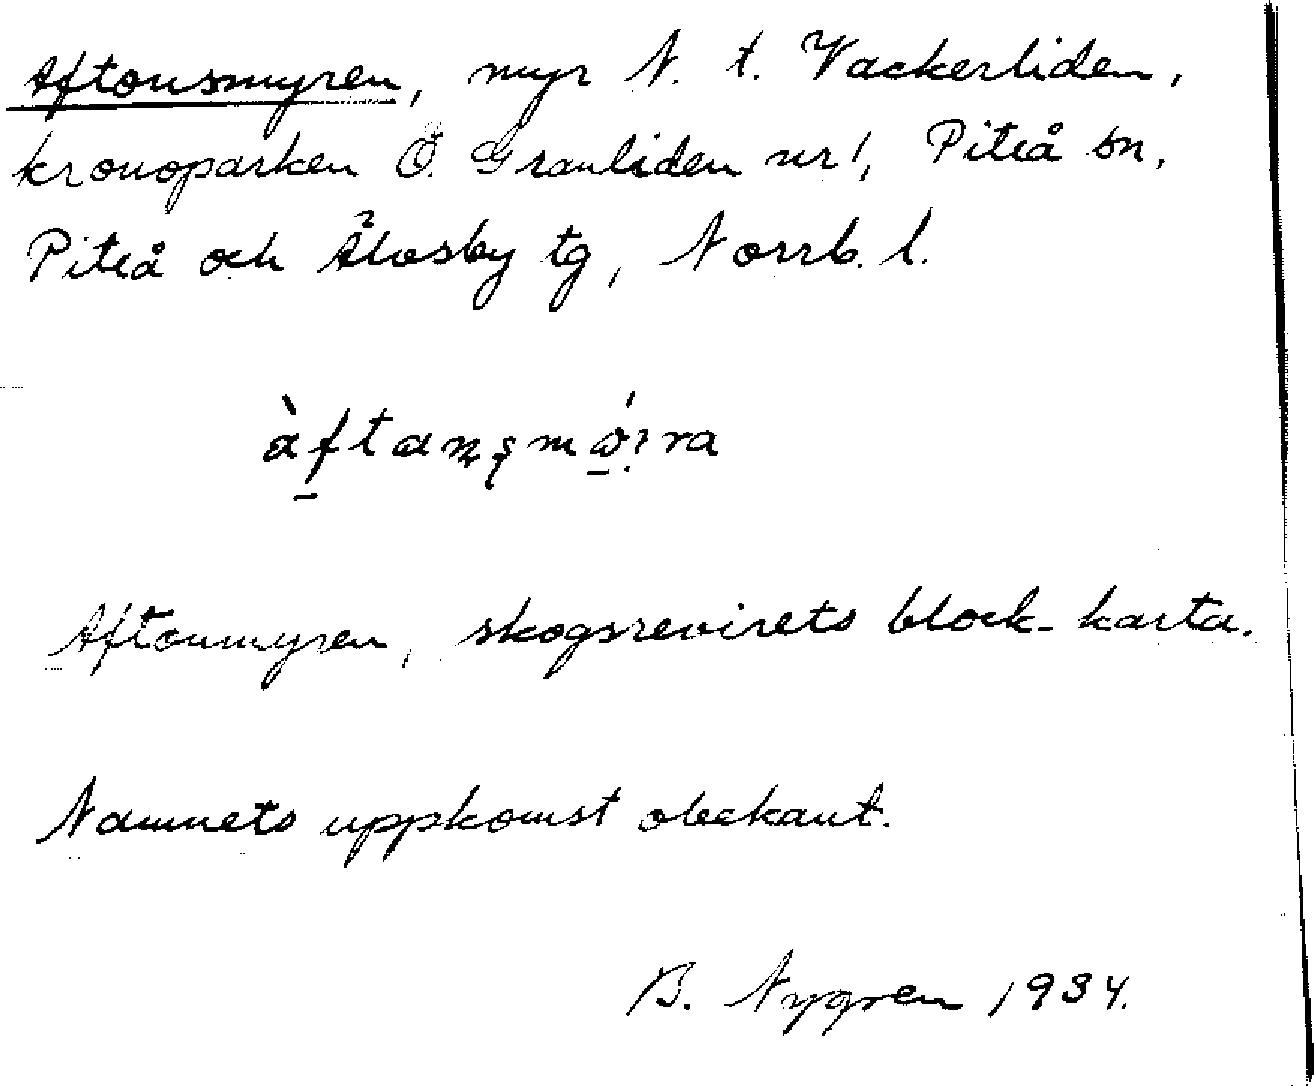 Aftonsmyren, myr N. t. Vackerliden,
kronoparken Ö. Granliden nr 1, Piteå sn,
Piteå och Älvsby tg, Norrb. l.
àftanşmǿ:ra
Aftonmyren, skogsrevirets block-karta.
Namnets uppkomst obekant.
B. Nygren 1934.